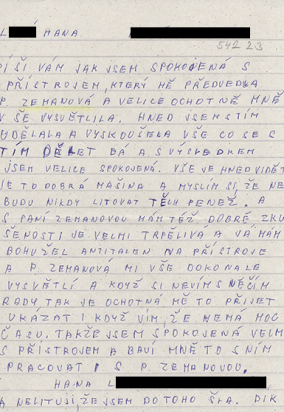 L HANA
542 23
PÍŠI VÁM JAK JSEM SPOKOJENÁ S
PŘÍSTROJEM, KTERÝ MĚ PŘEDVEDLA
P. ZEMANOVÁ A VELICE OCHOTNĚ MNĚ
VŠE VYSVĚTLILA. HNED JSEM S TÍM
UDĚLALA A VYSKOUŠELA VŠE CO SE S
TÍM DĚLAT DÁ A S VÝSLEDKEM
JSEM VELICE SPOKOJENÁ. VŠE JE HNED VIDĚT
JE TO DOBRÁ MAŠINA A MYSLÍM SI, ŽE NE
BUDU NIKDY LITOVAT TĚCH PENĚZ. A
S PANÍ ZEMANOVOU MÁM TÉŽ DOBRÉ ZKU
ŠENOSTI JE VELMI TRPĚLIVÁ A JÁ MÁM
BOHUŽEL ANTITALEN NA PŘÍSTROJE
A P. ZEMANOVÁ MI VŠE DOKONALE
VYSVĚTLÍ A KDYŽ SI NEVÍM S NĚČÍM
RADY TAK JE OCHOTNÁ MĚ TO PŘIJET
UKÁZAT I KDYŽ VÍM, ŽE NEMÁ MOC
ČASU. TAKŽE JSEM SPOKOJENÁ VELM
S PŘÍSTROJEM A BAVÍ MNĚ TO S NÍM
PRACOVAT I S P. ZEMANOVOU.
HANA L
A NELITUJI, ŽE JSEM DO TOHO ŠLA. DÍK